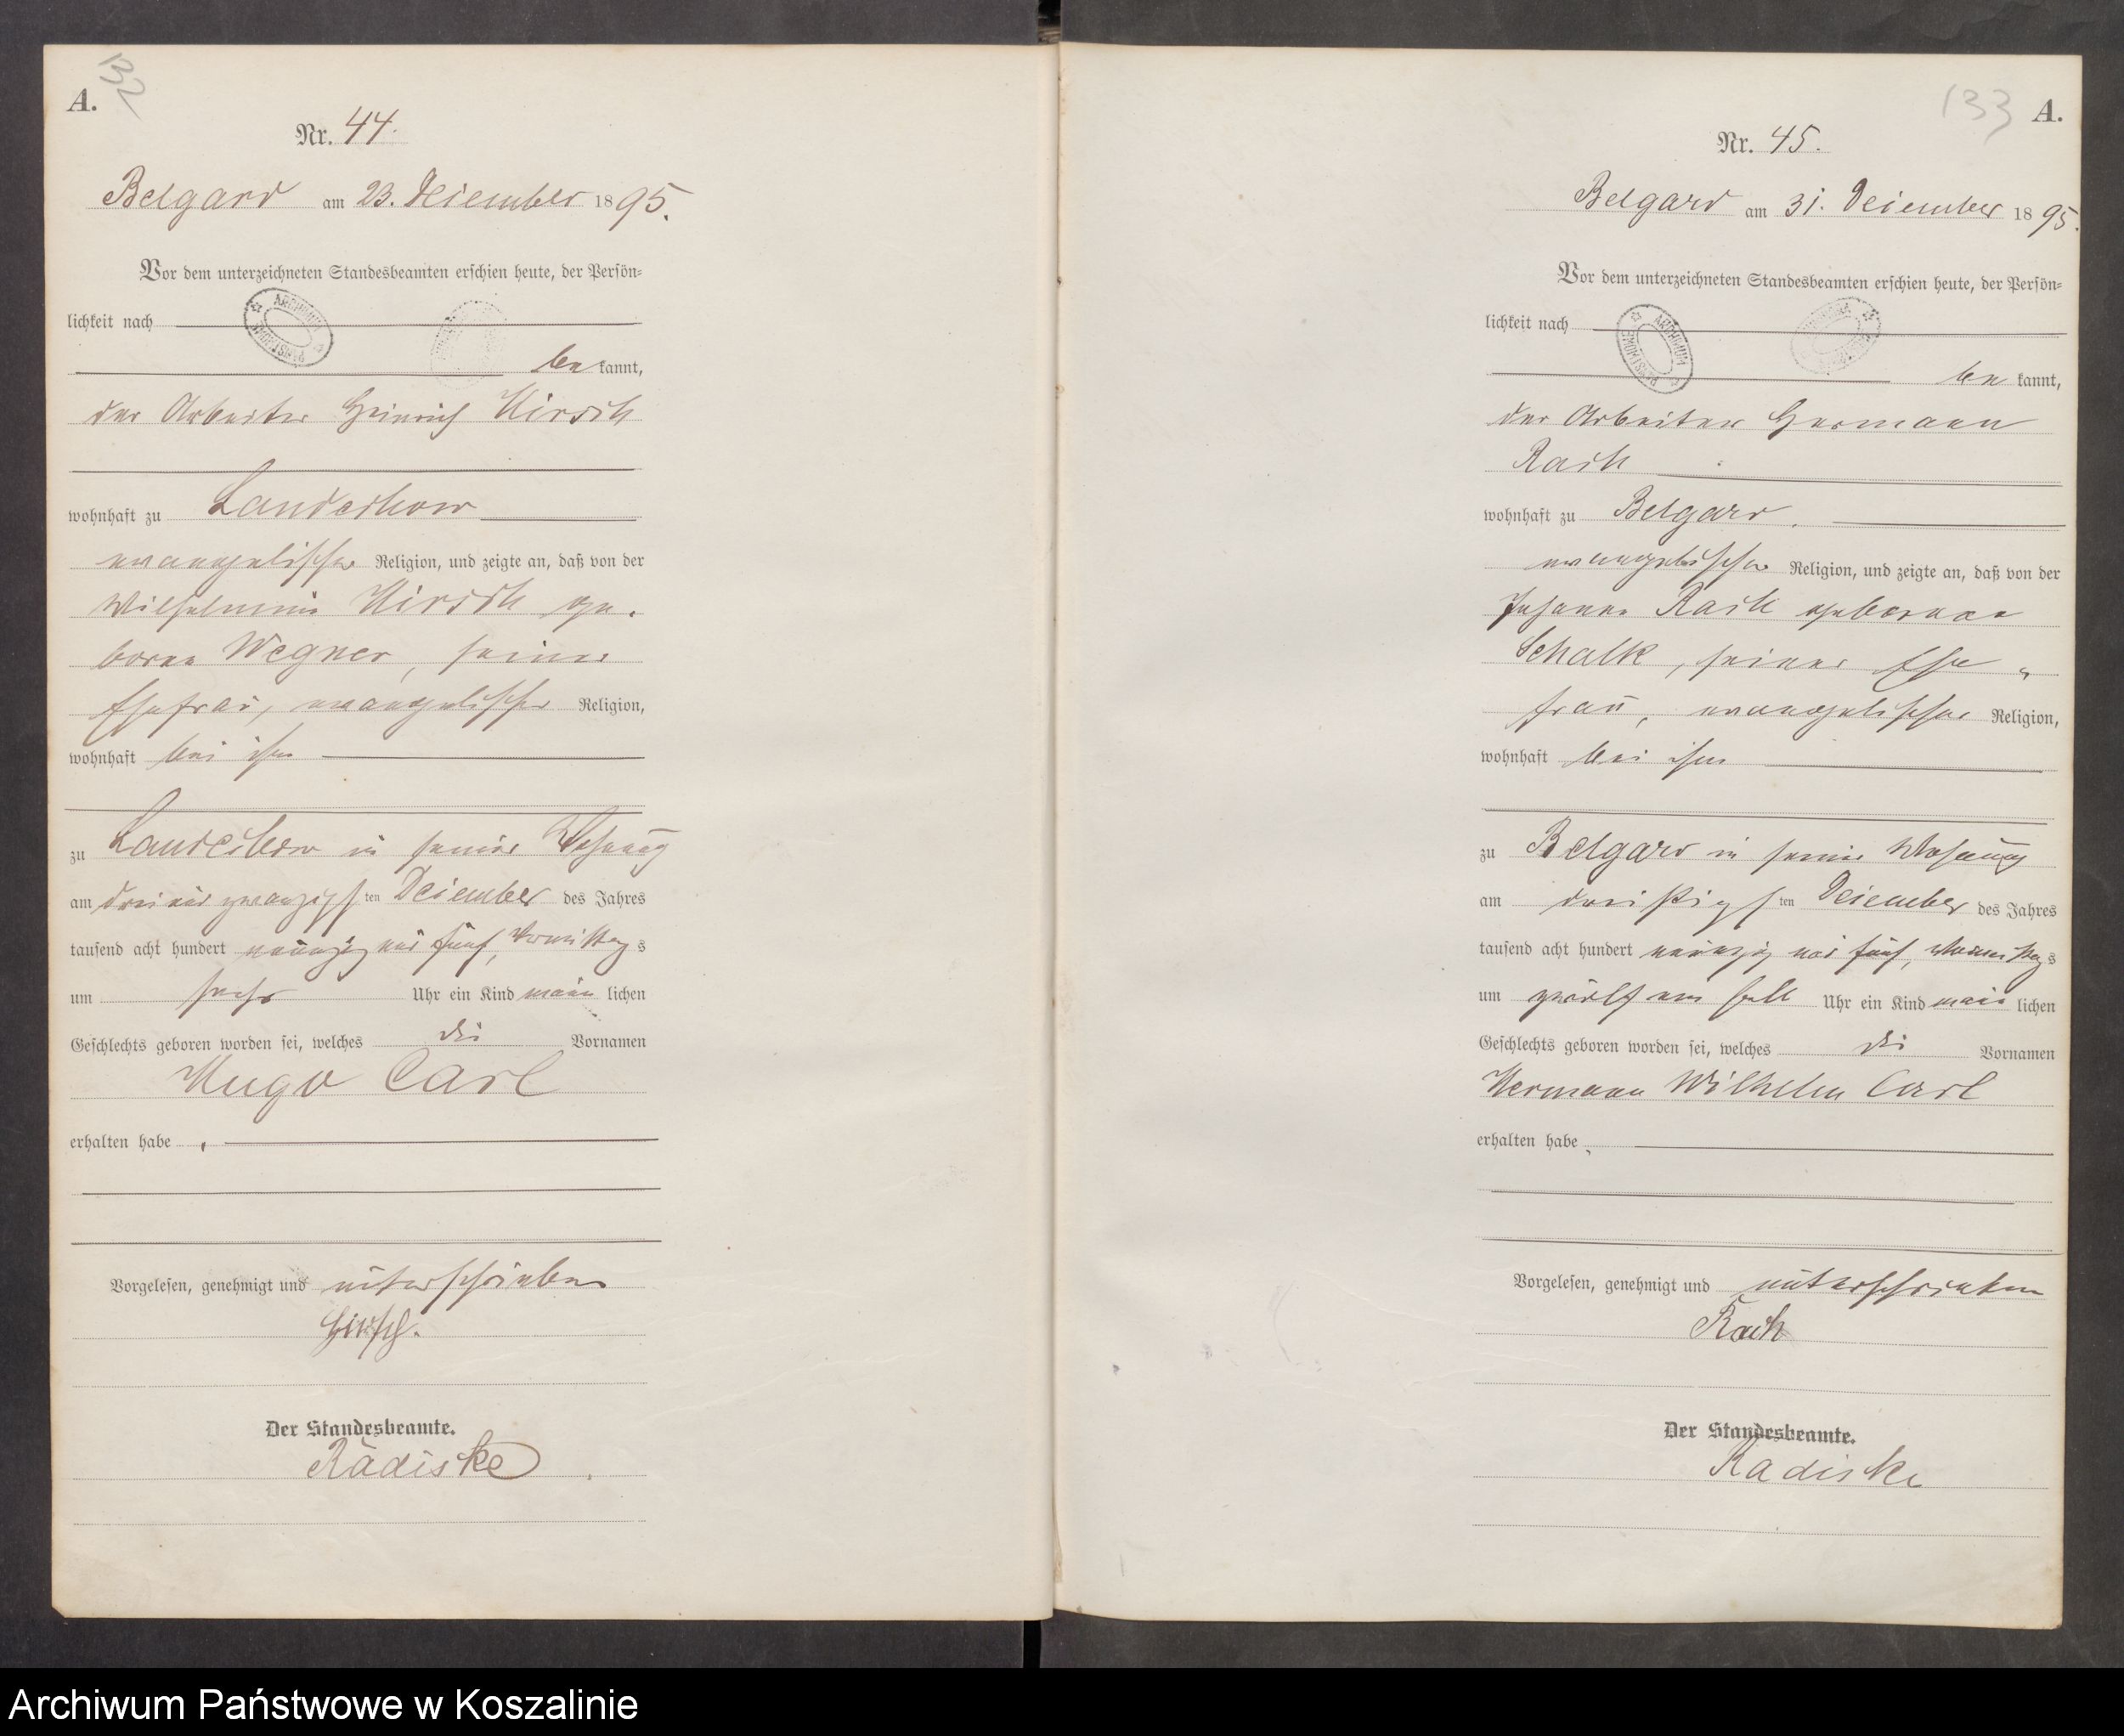 A.
132
Nr. 44.
Belgard am 23. Dezember 1895.
Vor dem unterzeichneten Standesbeamten erschien heute, der Persön=
lichkeit nach
be kannt,
der Arbeiter Heinrich Hirsch
wohnhaft zu Landechow
evangelischer Religion, und zeigte an, daß von der
Wilhelmine Hirsch ge-
borne Wegner, seiner
Ehefrau, evangelischer Religion,
wohnhaft bei ihm
zu Landechow in seiner Wohnung
am drei und zwanzigsten Dezember des Jahres
tausend acht hundert neunzig und fünf, Vormittags
um sechs Uhr ein Kind männlichen
Geschlechts geboren worden sei, welches die Vornamen
Hugo Carl
erhalten habe.
Vorgelesen, genehmigt und unterschrieben
Hirsch.
Der Standesbeamte.
Rädiske
133
A.
Nr. 45.
Belgard am 31. Dezember 1895.
Vor dem unterzeichneten Standesbeamten erschien heute, der Persön=
lichkeit nach
be kannt,
der Arbeiter Hermann
Rach
wohnhaft zu Belgard.
evangelischer Religion, und zeigte an, daß von der
Johanne Rach geborene
Schalk, seiner Ehe-
frau, evangelischer Religion,
wohnhaft bei ihm
zu Belgard in seiner Wohnung
am dreißigsten Dezember des Jahres
tausend acht hundert neunzig und fünf, Vormittags
um zwölf ein halb Uhr ein Kind männlichen
Geschlechts geboren worden sei, welches die Vornamen
Hermann Wilhelm Carl
erhalten habe.
Vorgelesen, genehmigt und unterschrieben
Rach
Der Standesbeamte.
Rädiske
Archiwum Państwowe w Koszalinie